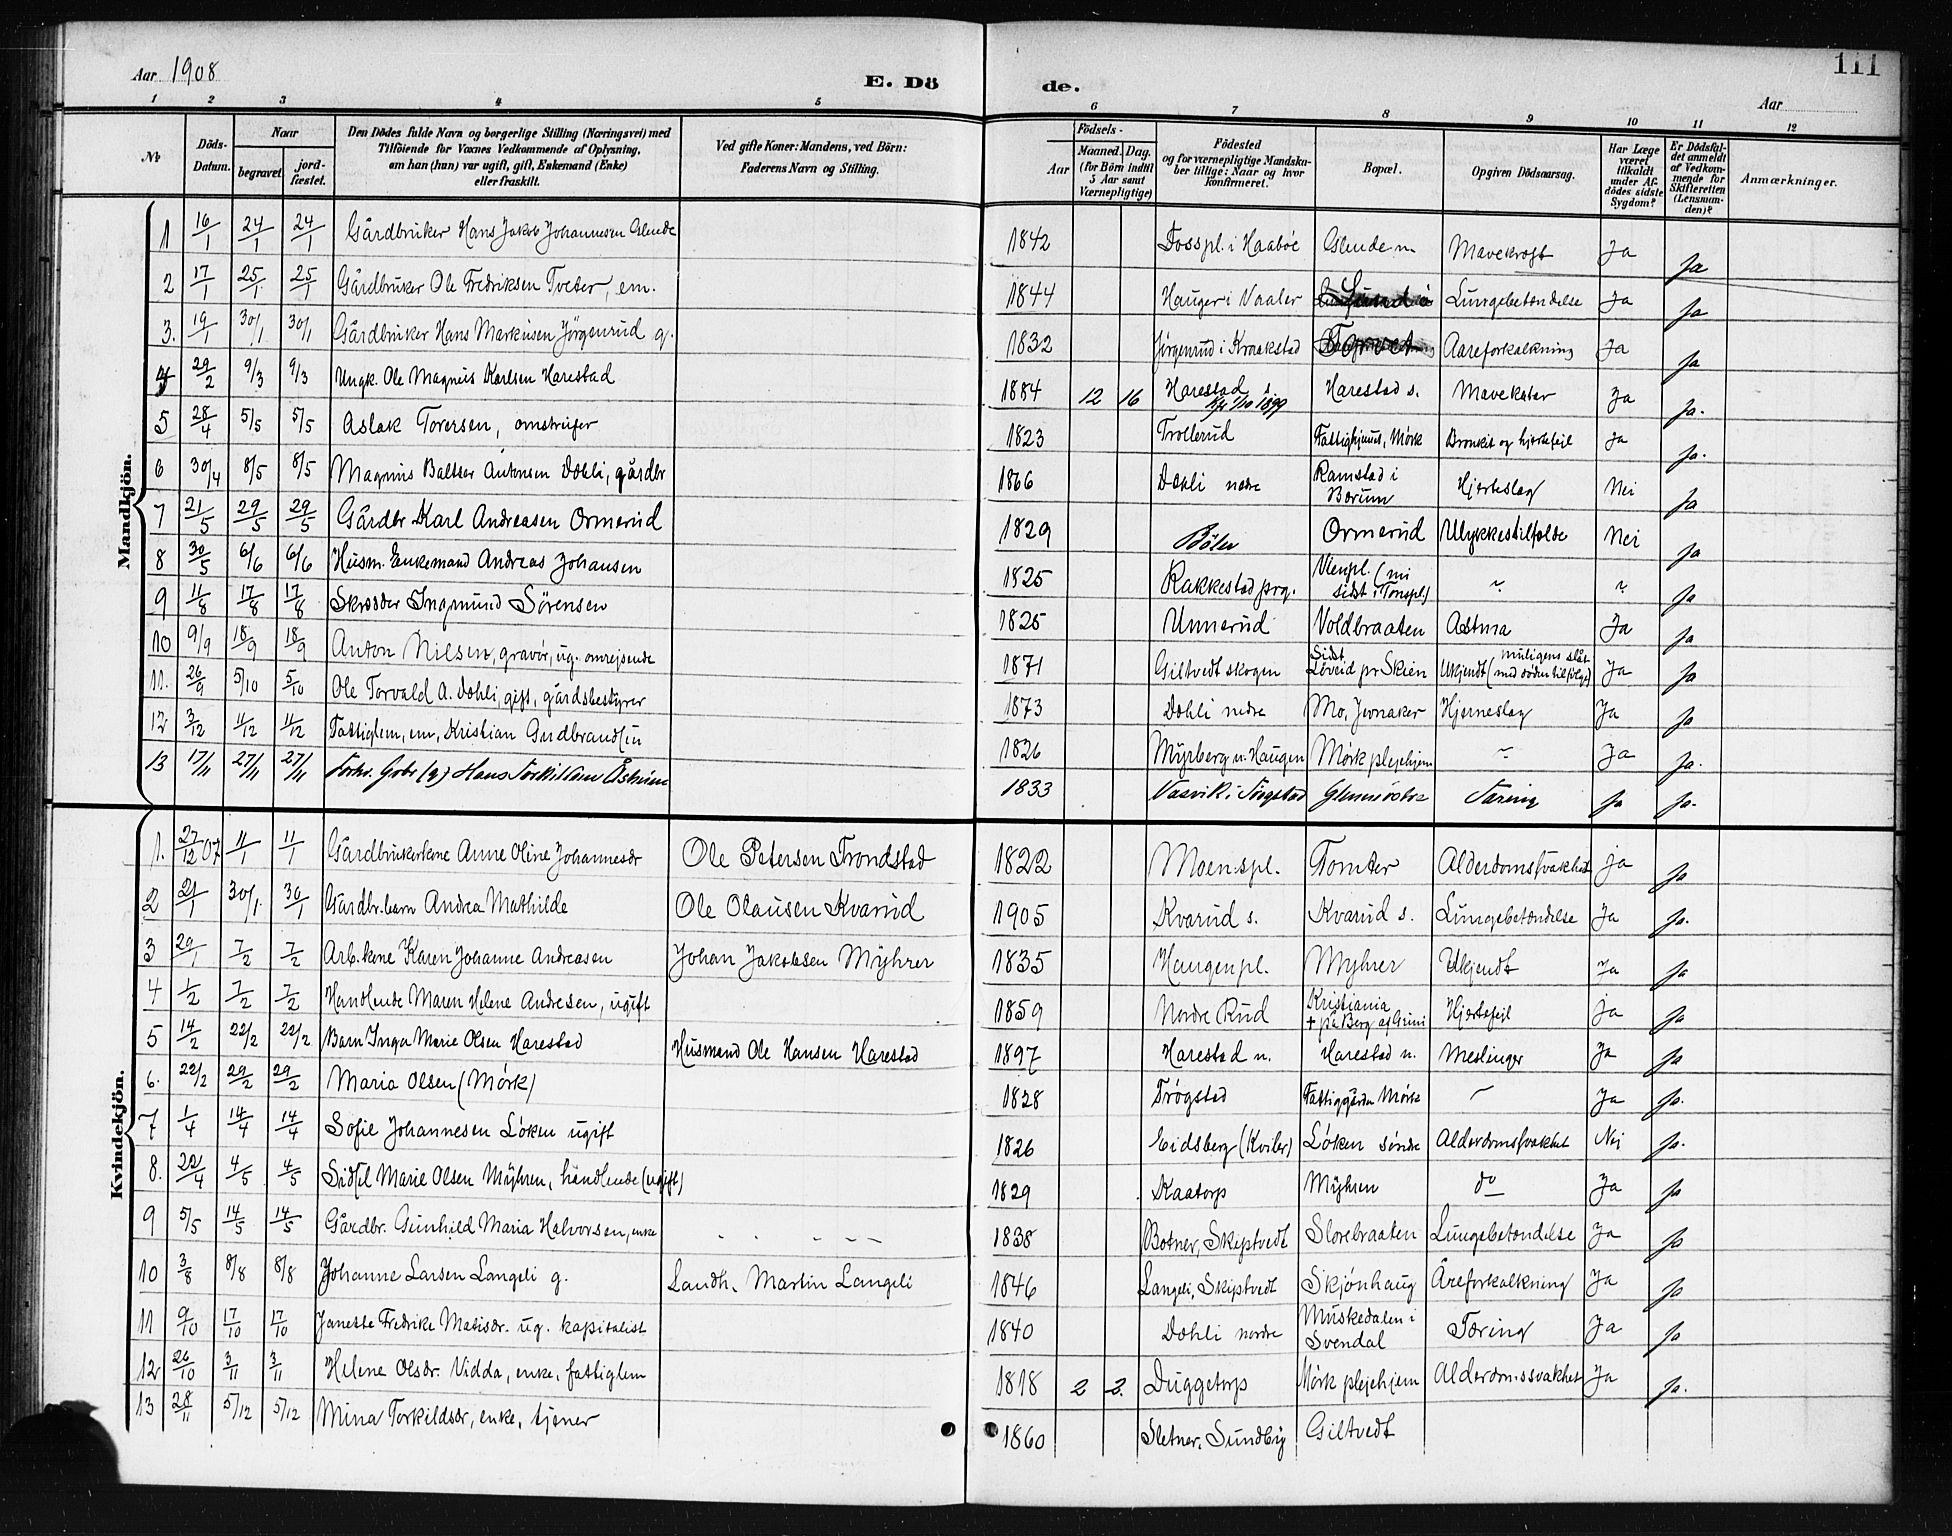 Aar 1908
E. Dö
de.
111
Aar
1 2 3 4 5 6 7 8 9 10 11 12
No
Döds-Datum.
Naar
begravet
jord-fæstet.
Den Dödes fulde Navn og borgerlige Stilling (Næringsvei) med
Tilföiende for Voxnes Vedkommende af Oplysning,
om han (hun) var ugift, gift, Enkemand (Enke)
eller fraskilt.
Ved gifte Koner: Mandens, ved Börn:
Faderens Navn og Stilling.
Födsels-
Aar
Maaned. Dag.
(for Börn indtil
5 Aar samt
Værnepligtige)
Födested
og for værnepligtige Mandska-
ber tillige: Naar og hvor
konfirmeret.
Bopæl.
Opgiven Dödsaarsag.
Har Læge
været
tilkaldt
under Af-
dödes sidste
Sygdom?
Er Dödsfal-
det anmeldt
af Vedkom-
mende for
Skifteretten
(Lensman-
den)?
Anmærkninger.
Mandkjön.
1 16/1 24/1 24/1 Gårdbruker Hans Jakob Johannesen Glende 1842 Fosspl. i Haabøl Glende n. Mavekræft Ja Ja
2 17/1 25/1 25/1 Gårdbruker Ole Fredriksen Tveter, em. 1844 Hauger i Vaaler Lungebetændelse Ja Ja
3. 19/1 30/1 30/1 Gårdbruker Hans Markusen Jørgenrud g. 1832 Jørgenrud i Kraakstad Aareforkalkning Ja Ja
4 29/2 9/3 9/3 Ungk. Ole Magnus Karlsen Harestad 1884 12 16 Harestad s. Kfr 1/10 1899 Harestad s. Mavekatar Ja Ja.
5 28/4 5/5 5/5 Aslak Torersen, omstreifer 1823 Trollerud Fattighjemmet, Mørk Bronkit og hjertefeil Ja Ja.
6 30/4 8/5 8/5 Magnus Baltser Antonsen Dæhli, gårdbr 1866 Dæhli nedre Ramstad i Bærum Hjerteslag Nei Ja
7 21/5 29/5 29/5 Gårdbr Karl Andreasen Ormerud 1829 Bøler Ormerud Ulykkestilfælde Nei Ja
8 30/5 6/6 6/6 Husm. Enkemand Andreas Johansen 1825 Rakkestad prg. Ja
9 11/8 17/8 17/8 Skræder Ingmund Sørensen 1825 Unnerud Voldbraaten Astma Ja Ja
10 9/9 18/9 18/9 Anton Nilsen, gravør, ug. omreisende 1871 Giltvedt skogen Sidst Løveid pr Skien Ukjendt (muligens slåt med døden tilfølge) Ja Ja
11. 26/9 5/10 5/10 Ole Torvald A. Dæhli, gift, gårdsbestyrer 1873 Dæhli nedre Mo, Jevnaker Hjerneslag Ja Ja
12 3/12 11/12 11/12 Fattiglem, em, Kristian Gudbrandsen 1826 Myrberg u. Haugen Mørk pleiehjem Ja Ja.
13 17/11 27/11 27/11 Forhv. Gbr (g) Hans Torkilsen 1833 i Trøgstad Tæring Ja Ja.
Kvindekjön.
1. 27/12 07 11/1 11/1 Gårdbrukerkone Anne Oline Johannesdr Ole Petersen Trondstad 1822 Moen spl. Tomter Alderdomssvakhet Ja Ja
2 21/1 30/1. 30/1 Gårdbr. barn Andrea Mathilde Ole Olausen Kvarud 1905 Kvarud s. Kvarud s. Lungebetændelse Ja Ja.
3 29/1 7/2 7/2 Arb. kone Karen Johanne Andreasen Johan Jakobsen Myhrer 1835 Haugenpl. Myhrer Ukjendt Ja Ja
4 1/2 7/2 7/2 Handlende Maren Helene Andresen, ugift 1859 Nordre Rud Kristiania + på Berg Hjertefeil Ja Ja
5 14/2 22/2 22/2 Barn Inga Marie Olsen Harestad Husmand Ole Hansen Harestad 1897 Harestad n. Harestad n. Meslinger Ja Ja
6. 22/2 29/2 29/2 Maria Olsen (Mørk) 1828 Trøgstad Fattiggården Mørk Ja Ja.
7 1/4 14/4 14/4 Sofie Johannesen Løken ugift 1826 Eidsberg (Kviler) Løken søndre Alderdomssvakhet Nei Ja.
8. 22/4 4/5 4/5 Sidsel Marie Olsen Myhren, handlende (ugift) 1829 Kaatorp Myhren do Ja Ja
9 5/5 14/5 14/5 Gårdbr. Gunhild Maria Halvorsen, enke 1838 Botner, Skiptvedt Slorebraaten Lungebetændelse Ja Ja
10 3/8 8/8 8/8 Johanne Larsen Langeli g. Landh. Martin Langeli 1846 Langeli, Skiptvedt Skjønhaug Åreforkalkning Ja Ja
11 9/10 17/10 17/10 Janette Fredrike Matisdr. ug. kapitalist 1840 Dæhli nordre Muskedalen i Svendal Tæring Ja Ja
12 26/10 3/11 3/11 Helene Olsdr. Vidda, enke, fattiglem 1818 2 2. Duggetorp Mørk pleiehjem Alderdomssvakhet Ja Ja.
13 28/11 5/12 5/12 Mina Torkildsdr, enke, tjener 1860 Sletner, Sundby Giltvedt